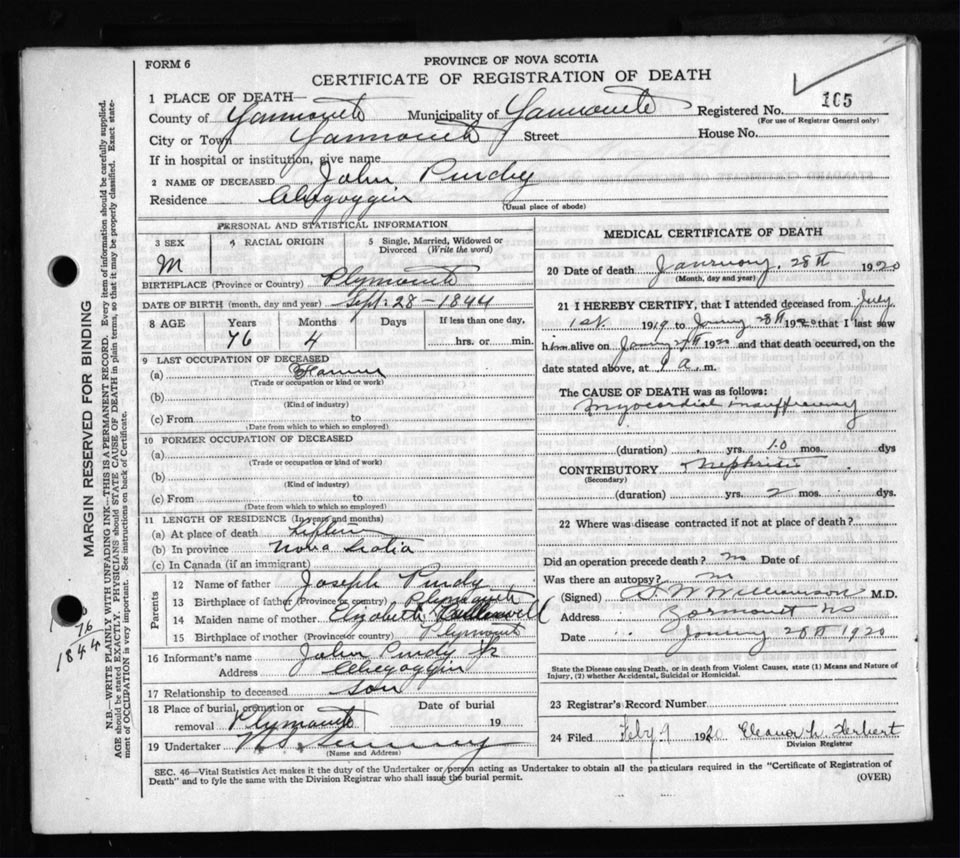 FORM 6
PROVINCE OF NOVA SCOTIA
CERTIFICATE OF REGISTRATION OF DEATH
1 PLACE OF DEATH—
County of Yarmouth Municipality of Yarmouth Registered No. 165
(For use of Registrar General only)
City or Town Yarmouth Street House No.
If in hospital or institution, give name
2 NAME OF DECEASED John Purdy
Residence Chegoggin (Usual place of abode)
PERSONAL AND STATISTICAL INFORMATION
3 SEX M
4 RACIAL ORIGIN
5 Single, Married, Widowed or Divorced (Write the word)
BIRTHPLACE (Province or Country) Plymouth
DATE OF BIRTH (month, day and year) Sept. 28 - 1844
8 AGE Years 76 Months 4 Days If less than one day, hrs. or min.
9 LAST OCCUPATION OF DECEASED
(a) Farmer
(Trade or occupation or kind or work)
(b)
(Kind of industry)
(c) From to
(Date from which to which so employed)
10 FORMER OCCUPATION OF DECEASED
(a)
(Trade or occupation or kind of work)
(b)
(Kind of industry)
(c) From to
(Date from which to which so employed)
11 LENGTH OF RESIDENCE (In years and months)
(a) At place of death
(b) In province Nova Scotia
(c) In Canada (if an immigrant)
Parents
12 Name of father Joseph Purdy
13 Birthplace of father (Province or country) Plymouth
14 Maiden name of mother Elizabeth
15 Birthplace of mother (Province or country) Plymouth
16 Informant's name John Purdy Jr
Address Chegoggin
17 Relationship to deceased son
18 Place of burial, cremation or removal Plymouth Date of burial 19
19 Undertaker
(Name and Address)
MEDICAL CERTIFICATE OF DEATH
20 Date of death January, 28th 1920
(Month, day and year)
21 I HEREBY CERTIFY, that I attended deceased from July
1st. 1919 to Janry 28th 1920 that I last saw
him alive on Janry 1920 and that death occurred, on the
date stated above, at a. m.
The CAUSE OF DEATH was as follows:
Myocardial insufficiency
(duration) yrs. 10 mos. dys
CONTRIBUTORY Nephritis
(Secondary)
(duration) yrs. 2 mos. dys.
22 Where was disease contracted if not at place of death?
Did an operation precede death? no Date of
Was there an autopsy? no
(Signed) Williamson M.D.
Address Yarmouth NS
Date Janry 28th 1920
State the Disease causing Death, or in death from Violent Causes, state (1) Means and Nature of
Injury, (2) whether Accidental, Suicidal or Homicidal.
23 Registrar's Record Number
24 Filed Feby 9 1920 Eleanor L. Herbert
Division Registrar
SEC. 46—Vital Statistics Act makes it the duty of the Undertaker or person acting as Undertaker to obtain all the particulars required in the "Certificate of Registration of
Death" and to fyle the same with the Division Registrar who shall issue the burial permit. (OVER)
MARGIN RESERVED FOR BINDING
N.B.—WRITE PLAINLY WITH UNFADING INK—THIS IS A PERMANENT RECORD. Every item of information should be carefully supplied.
AGE should be stated EXACTLY. PHYSICIANS should STATE CAUSE OF DEATH in plain terms, so that it may be properly classified. Exact state-
ment of OCCUPATION is very important. See instructions on back of Certificate.
76
1844